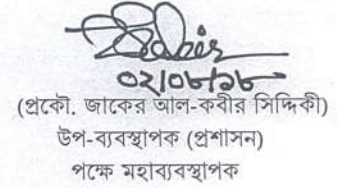 ০২/০৮/১৮
(প্রকৌ. জাকের আল-কবীর সিদ্দিকী)
উপ-ব্যবস্থাপক (প্রশাসন)
পক্ষে মহাব্যবস্থাপক